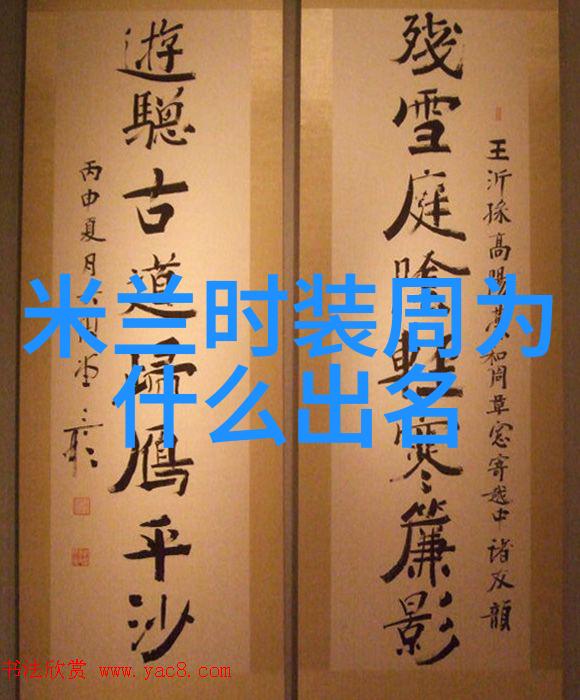 殘雪庭陰輕寒簾影
王沂孫高陽臺和周草窓寄越中諸友韻
遊驄古道歸鴈平沙
丙申夏月
米兰时装周为
什么出名
书法欣赏 www.yac8.com